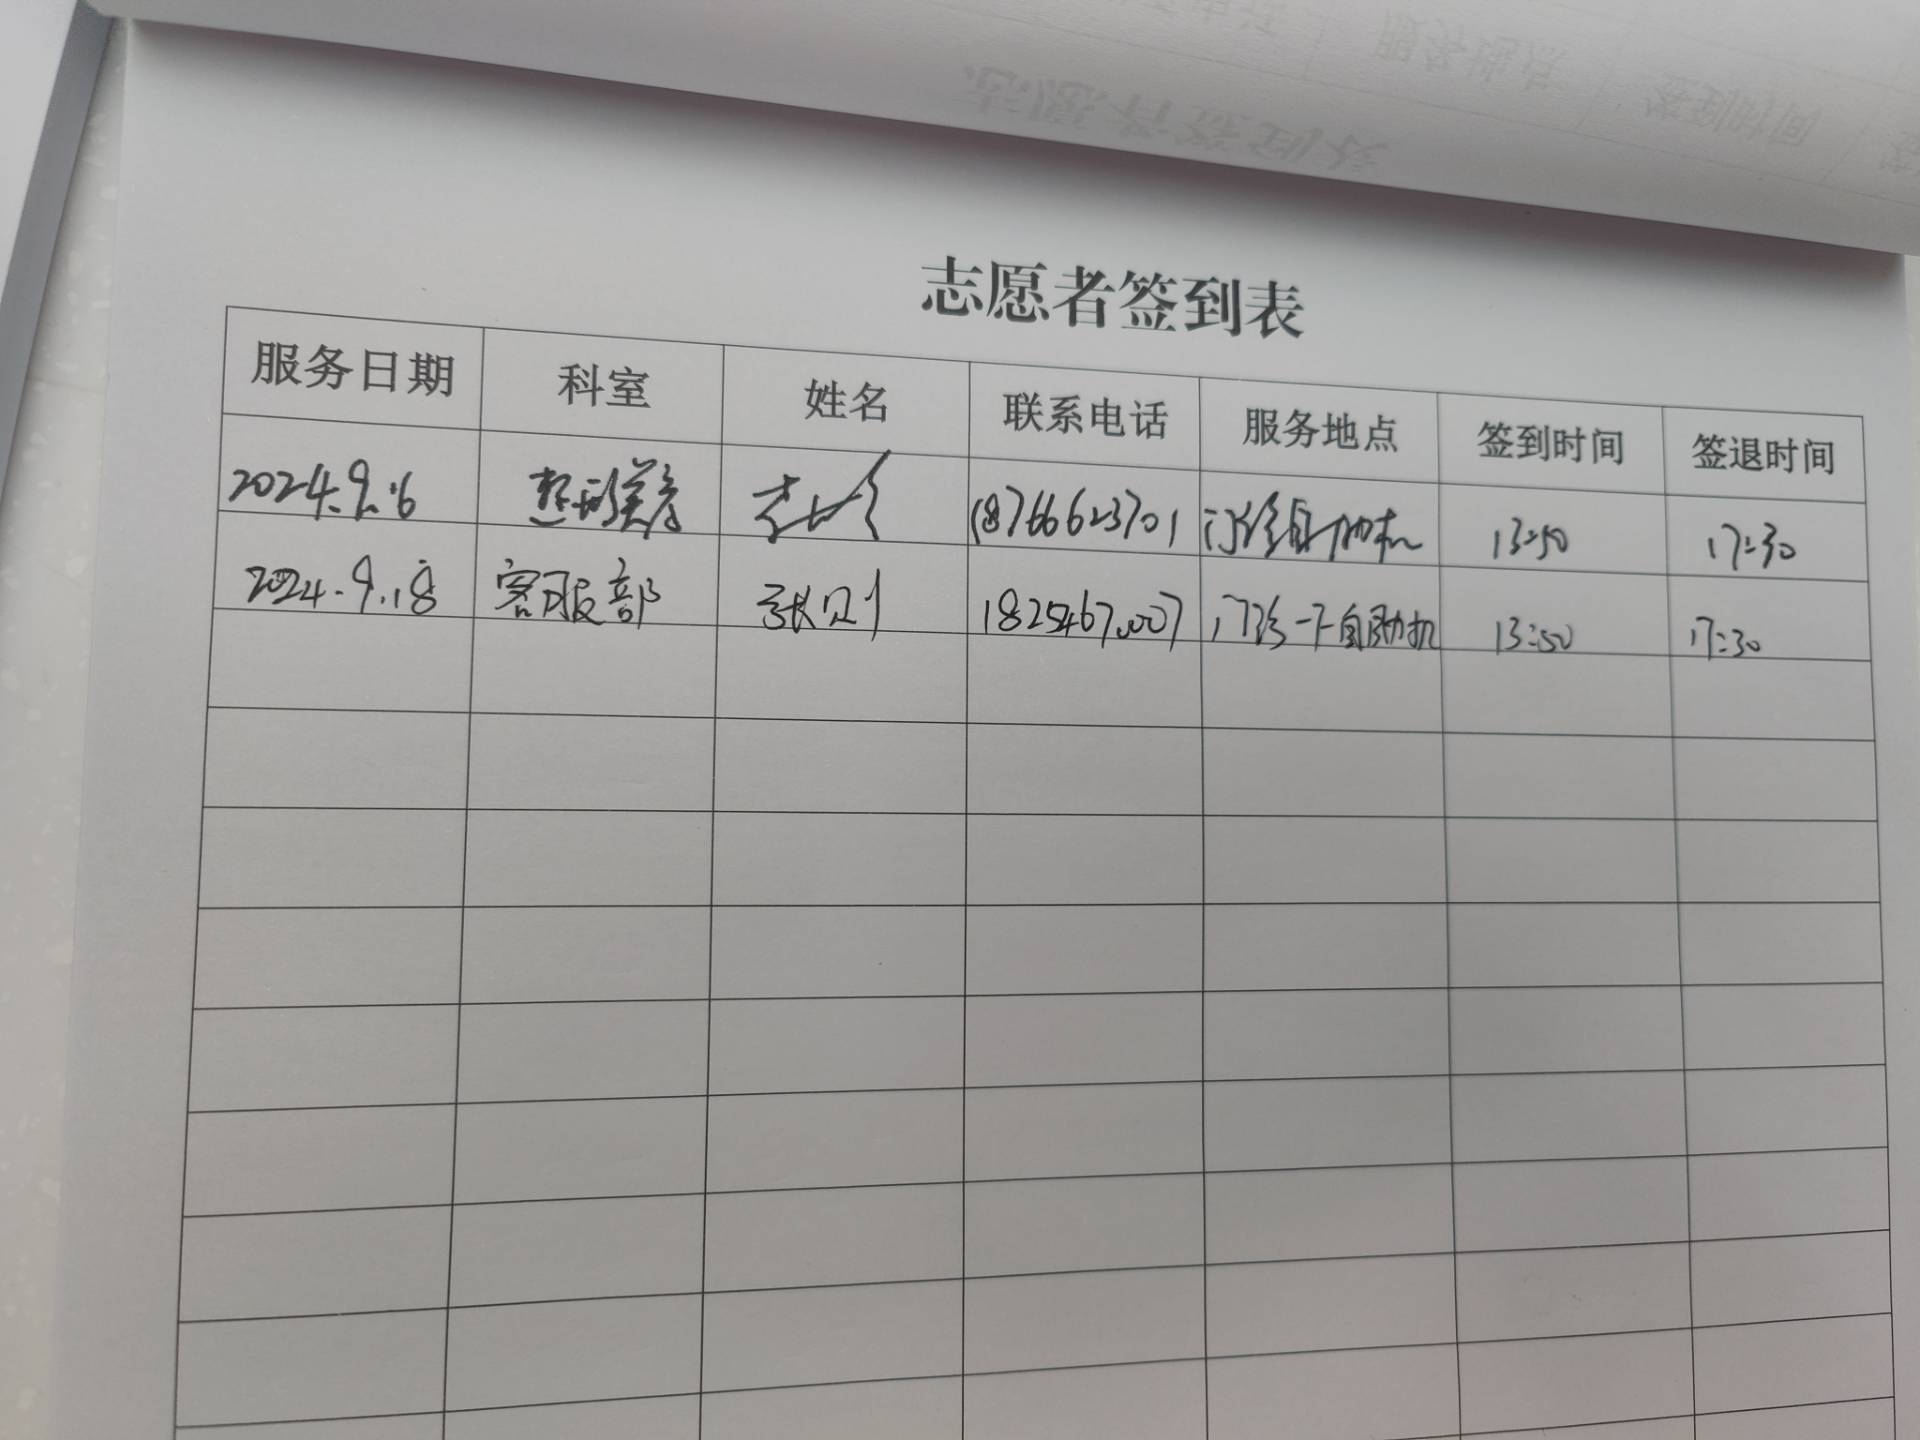 志愿者签到表
服务日期 科室 姓名 联系电话 服务地点 签到时间 签退时间
2024.9.6 整形美容 18766623701 门诊自助机 13:50 17:30
2024.9.18 客服部 张贝 门诊一下自助机 13:50 17:30